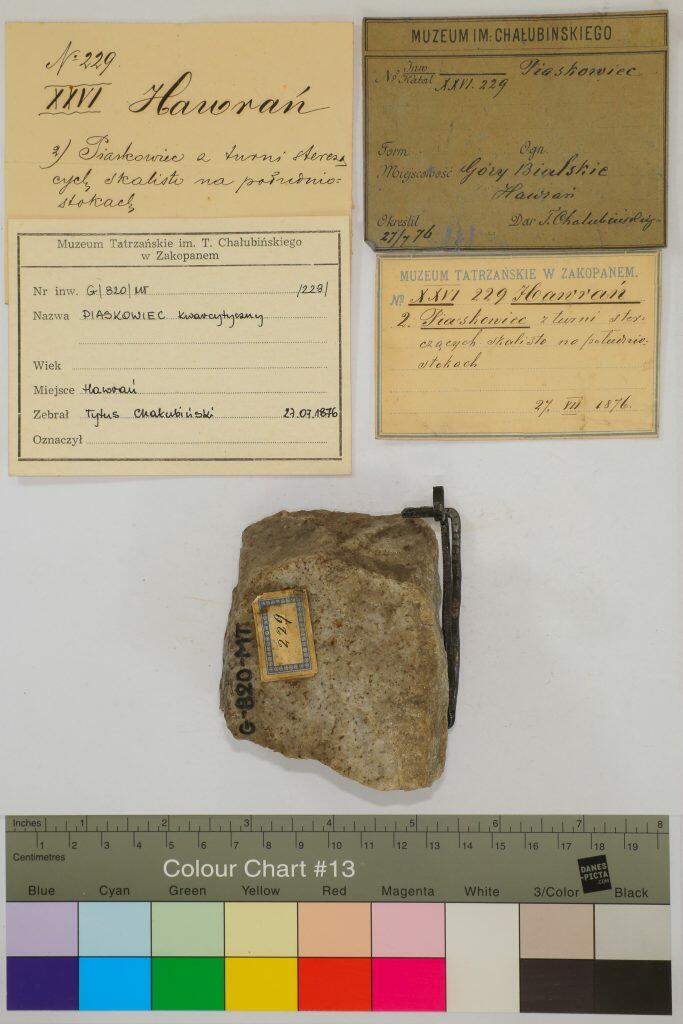 No 229.
XXVI Hawrań
2) Piaskowiec z turni stercza
cych skalisto na południo-
stokach
MUZEUM IM: CHAŁUBINSKIEGO
No Inw Katal XXVI. 229 Piaskowiec
Form Ogn.
Miejscowość Góry Bialskie
Hawrań
Określił Dar T. Chałubińskiego
27/7 76
Muzeum Tatrzańskie im. T. Chałubińskiego
w Zakopanem
Nr inw. G/820/MT /229/
Nazwa PIASKOWIEC kwarcytyczny
Wiek
Miejsce Hawrań
Zebrał Tytus Chałubiński 27.07.1876
Oznaczył
MUZEUM TATRZAŃSKIE W ZAKOPANEM.
No XXVI 229 Hawrań
2. Piaskowiec z turni ster-
czących skalisto na południo-
stokach
27. VII 1876.
229
G-820-MT
Inches 1 2 3 4 5 6 7 8
1 2 3 4 5 6 7 8 9 10 11 12 13 14 15 16 17 18 19
Centimetres
Colour Chart #13
DANES-
PICTA
.COM
Blue Cyan Green Yellow Red Magenta White 3/Color Black